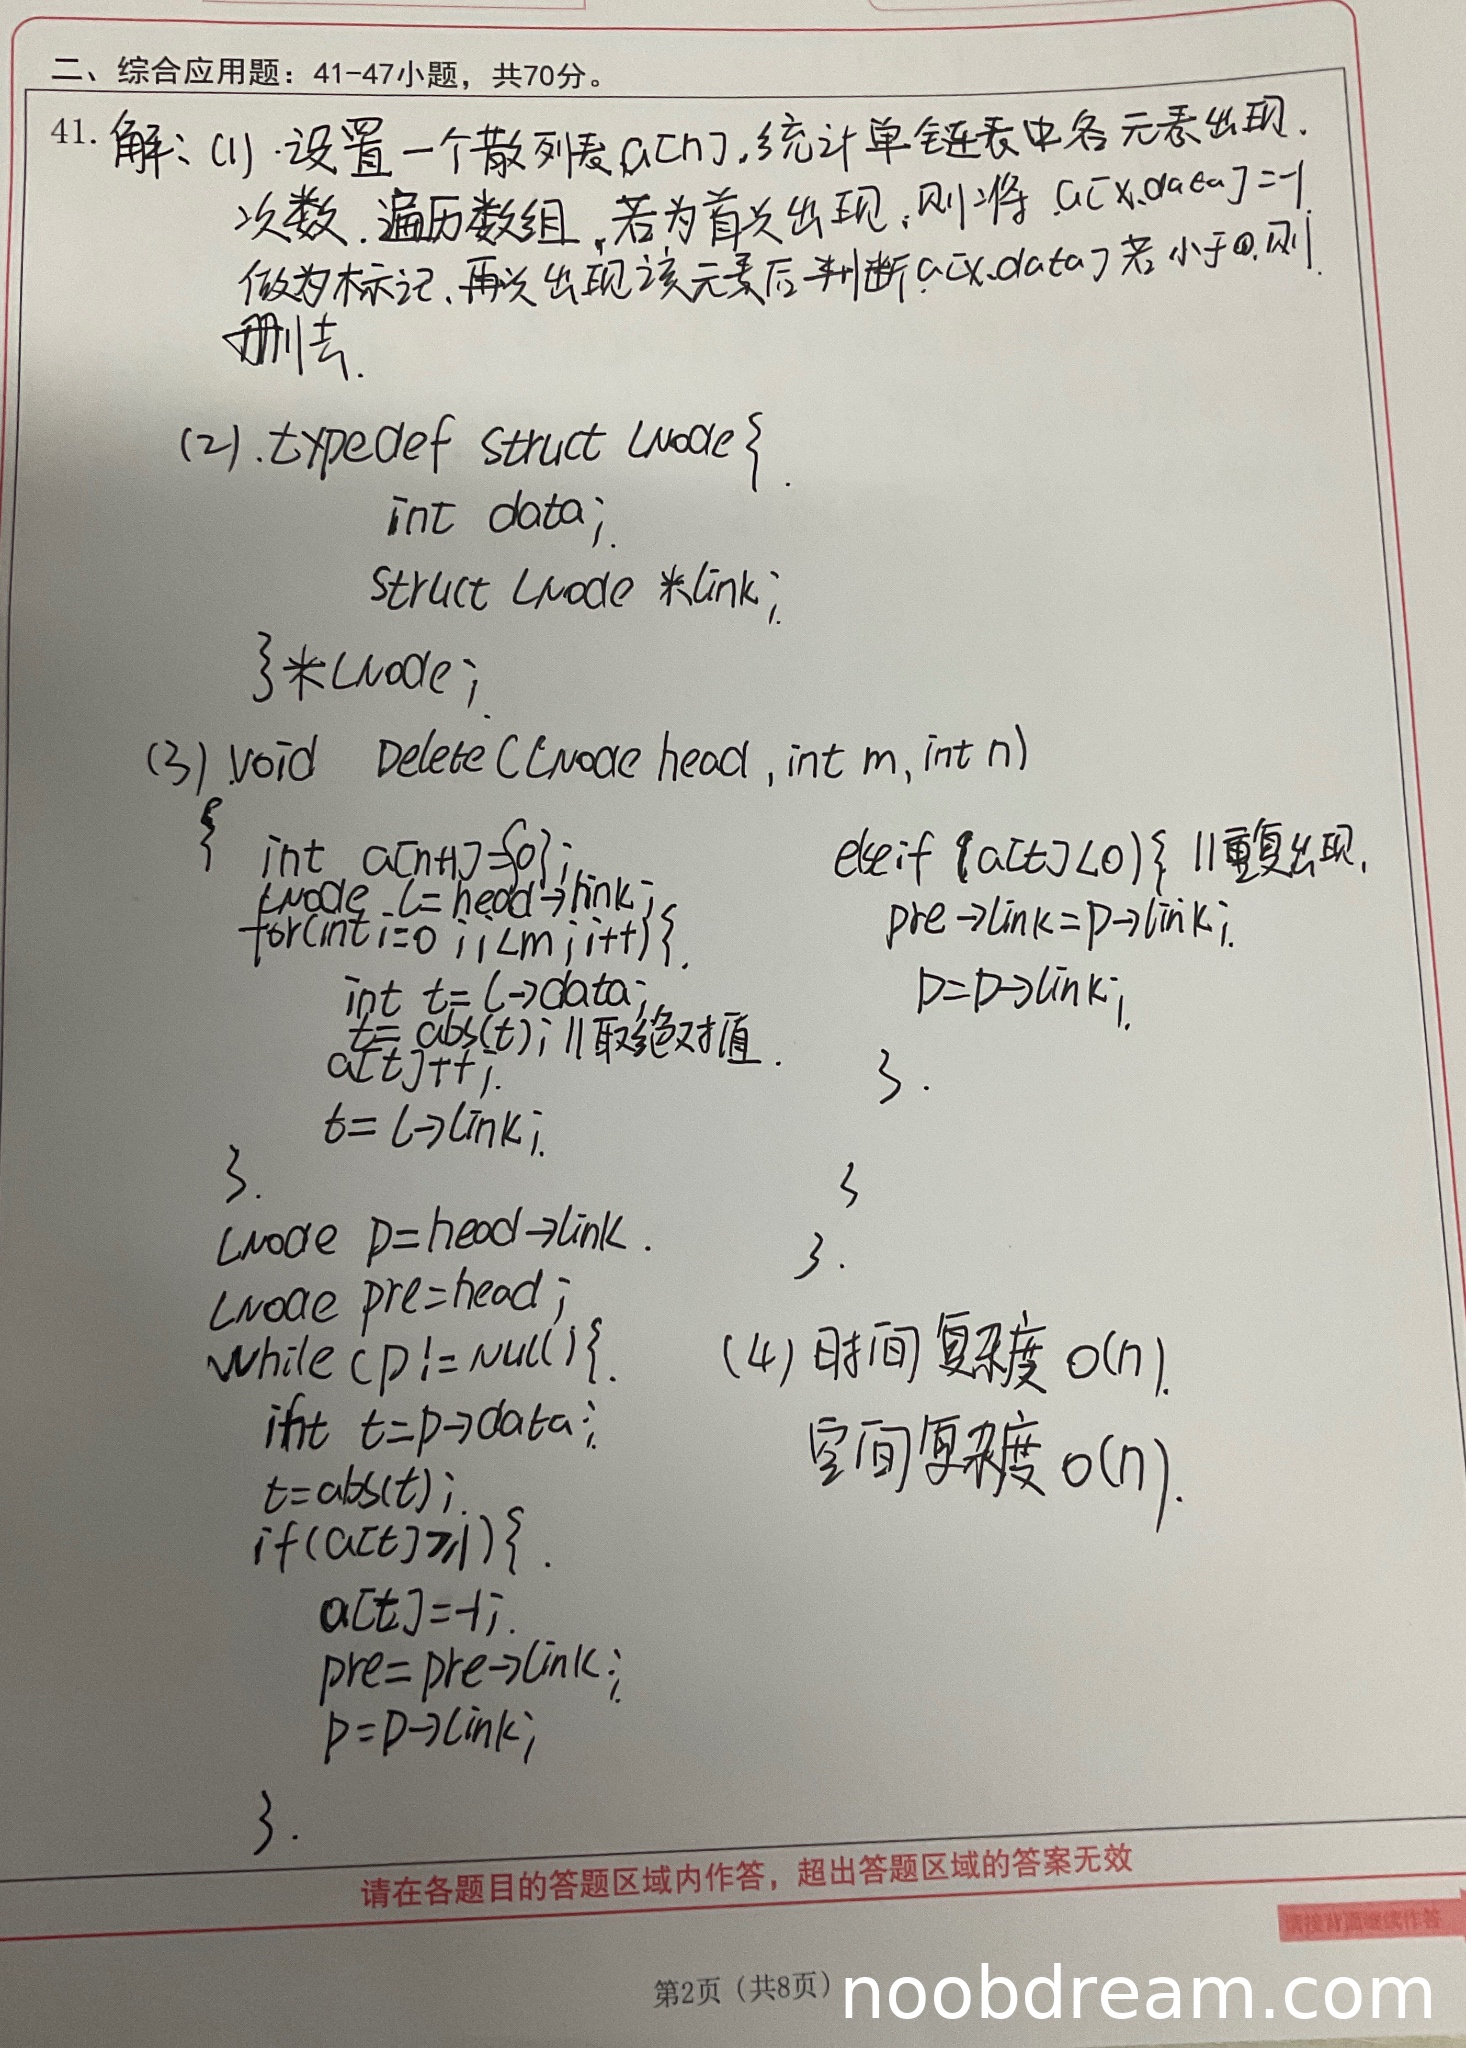 二、综合应用题：41-47小题，共70分。
41. 解：(1) 设置一个散列表a[n]，统计单链表中各元素出现
次数，遍历数组，若为首次出现，则将a[x.data]=-1
做为标记，再次出现该元素后判断a[x.data]若小于0，则
删去.
(2). typedef struct LNode{
int data;
struct LNode *link;
}*LNode;
(3) void Delete(LNode head, int m, int n)
{
int a[n+1]={0};
LNode L=head->link;
for(int i=0;i<m;i++){
int t=L->data;
t=abs(t); //取绝对值
a[t]++;
t=L->link;
}
LNode p=head->link.
LNode pre=head;
while(p!=NULL){
int t=p->data;
t=abs(t);
if(a[t]≥1){
a[t]=-1;
pre=pre->link;
p=p->link;
}
else if(a[t]<0){ //重复出现.
pre->link=p->link;
p=p->link;
}
}
}
(4) 时间复杂度 O(n).
空间复杂度 O(n).
请在各题目的答题区域内作答，超出答题区域的答案无效
请接背面继续作答
第2页（共8页）
noobdream.com